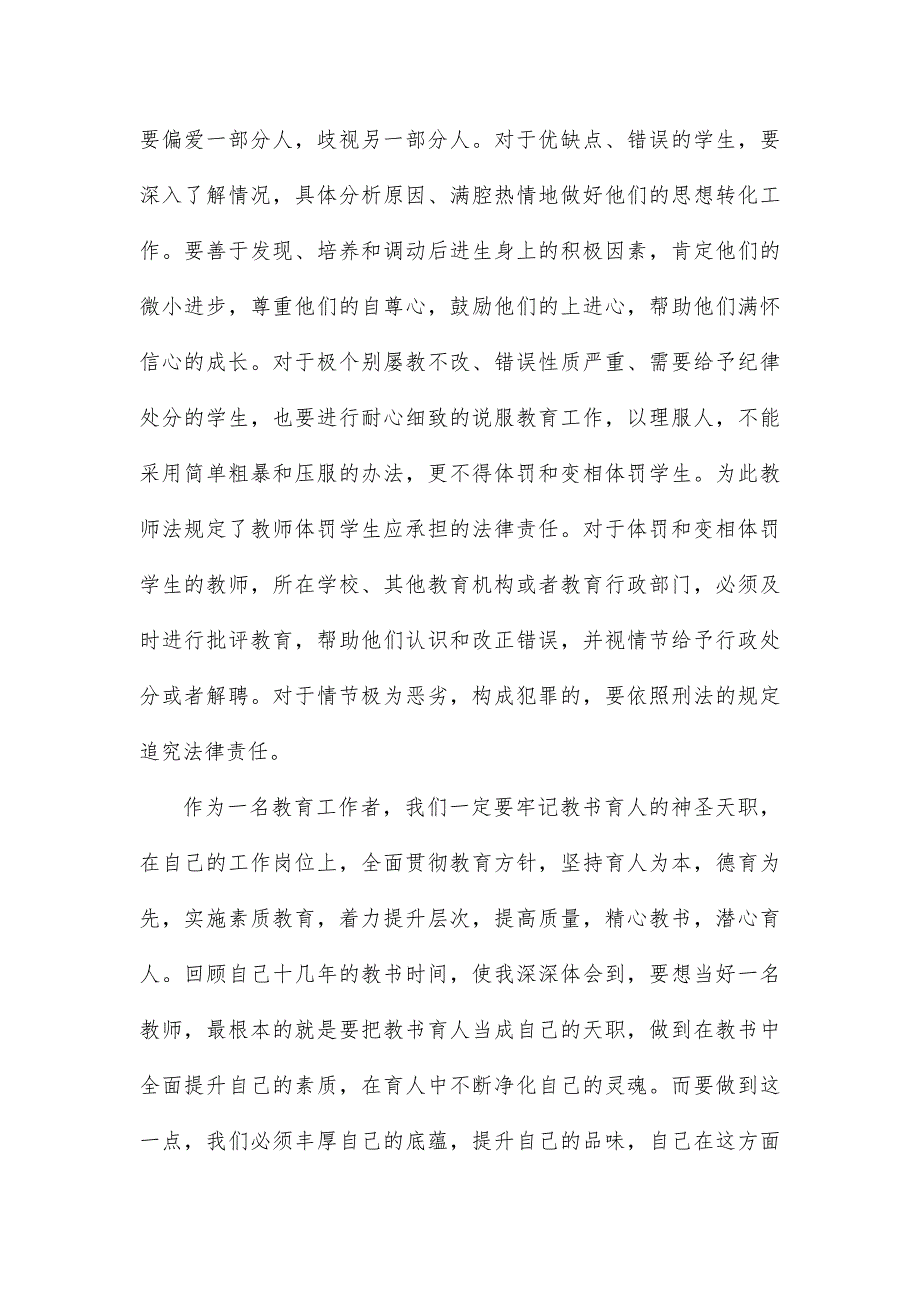 要偏爱一部分人，歧视另一部分人。对于优缺点、错误的学生，要
深入了解情况，具体分析原因、满腔热情地做好他们的思想转化工
作。要善于发现、培养和调动后进生身上的积极因素，肯定他们的
微小进步，尊重他们的自尊心，鼓励他们的上进心，帮助他们满怀
信心的成长。对于极个别屡教不改、错误性质严重、需要给予纪律
处分的学生，也要进行耐心细致的说服教育工作，以理服人，不能
采用简单粗暴和压服的办法，更不得体罚和变相体罚学生。为此教
师法规定了教师体罚学生应承担的法律责任。对于体罚和变相体罚
学生的教师，所在学校、其他教育机构或者教育行政部门，必须及
时进行批评教育，帮助他们认识和改正错误，并视情节给予行政处
分或者解聘。对于情节极为恶劣，构成犯罪的，要依照刑法的规定
追究法律责任。
作为一名教育工作者，我们一定要牢记教书育人的神圣天职，
在自己的工作岗位上，全面贯彻教育方针，坚持育人为本，德育为
先，实施素质教育，着力提升层次，提高质量，精心教书，潜心育
人。回顾自己十几年的教书时间，使我深深体会到，要想当好一名
教师，最根本的就是要把教书育人当成自己的天职，做到在教书中
全面提升自己的素质，在育人中不断净化自己的灵魂。而要做到这
一点，我们必须丰厚自己的底蕴，提升自己的品味，自己在这方面